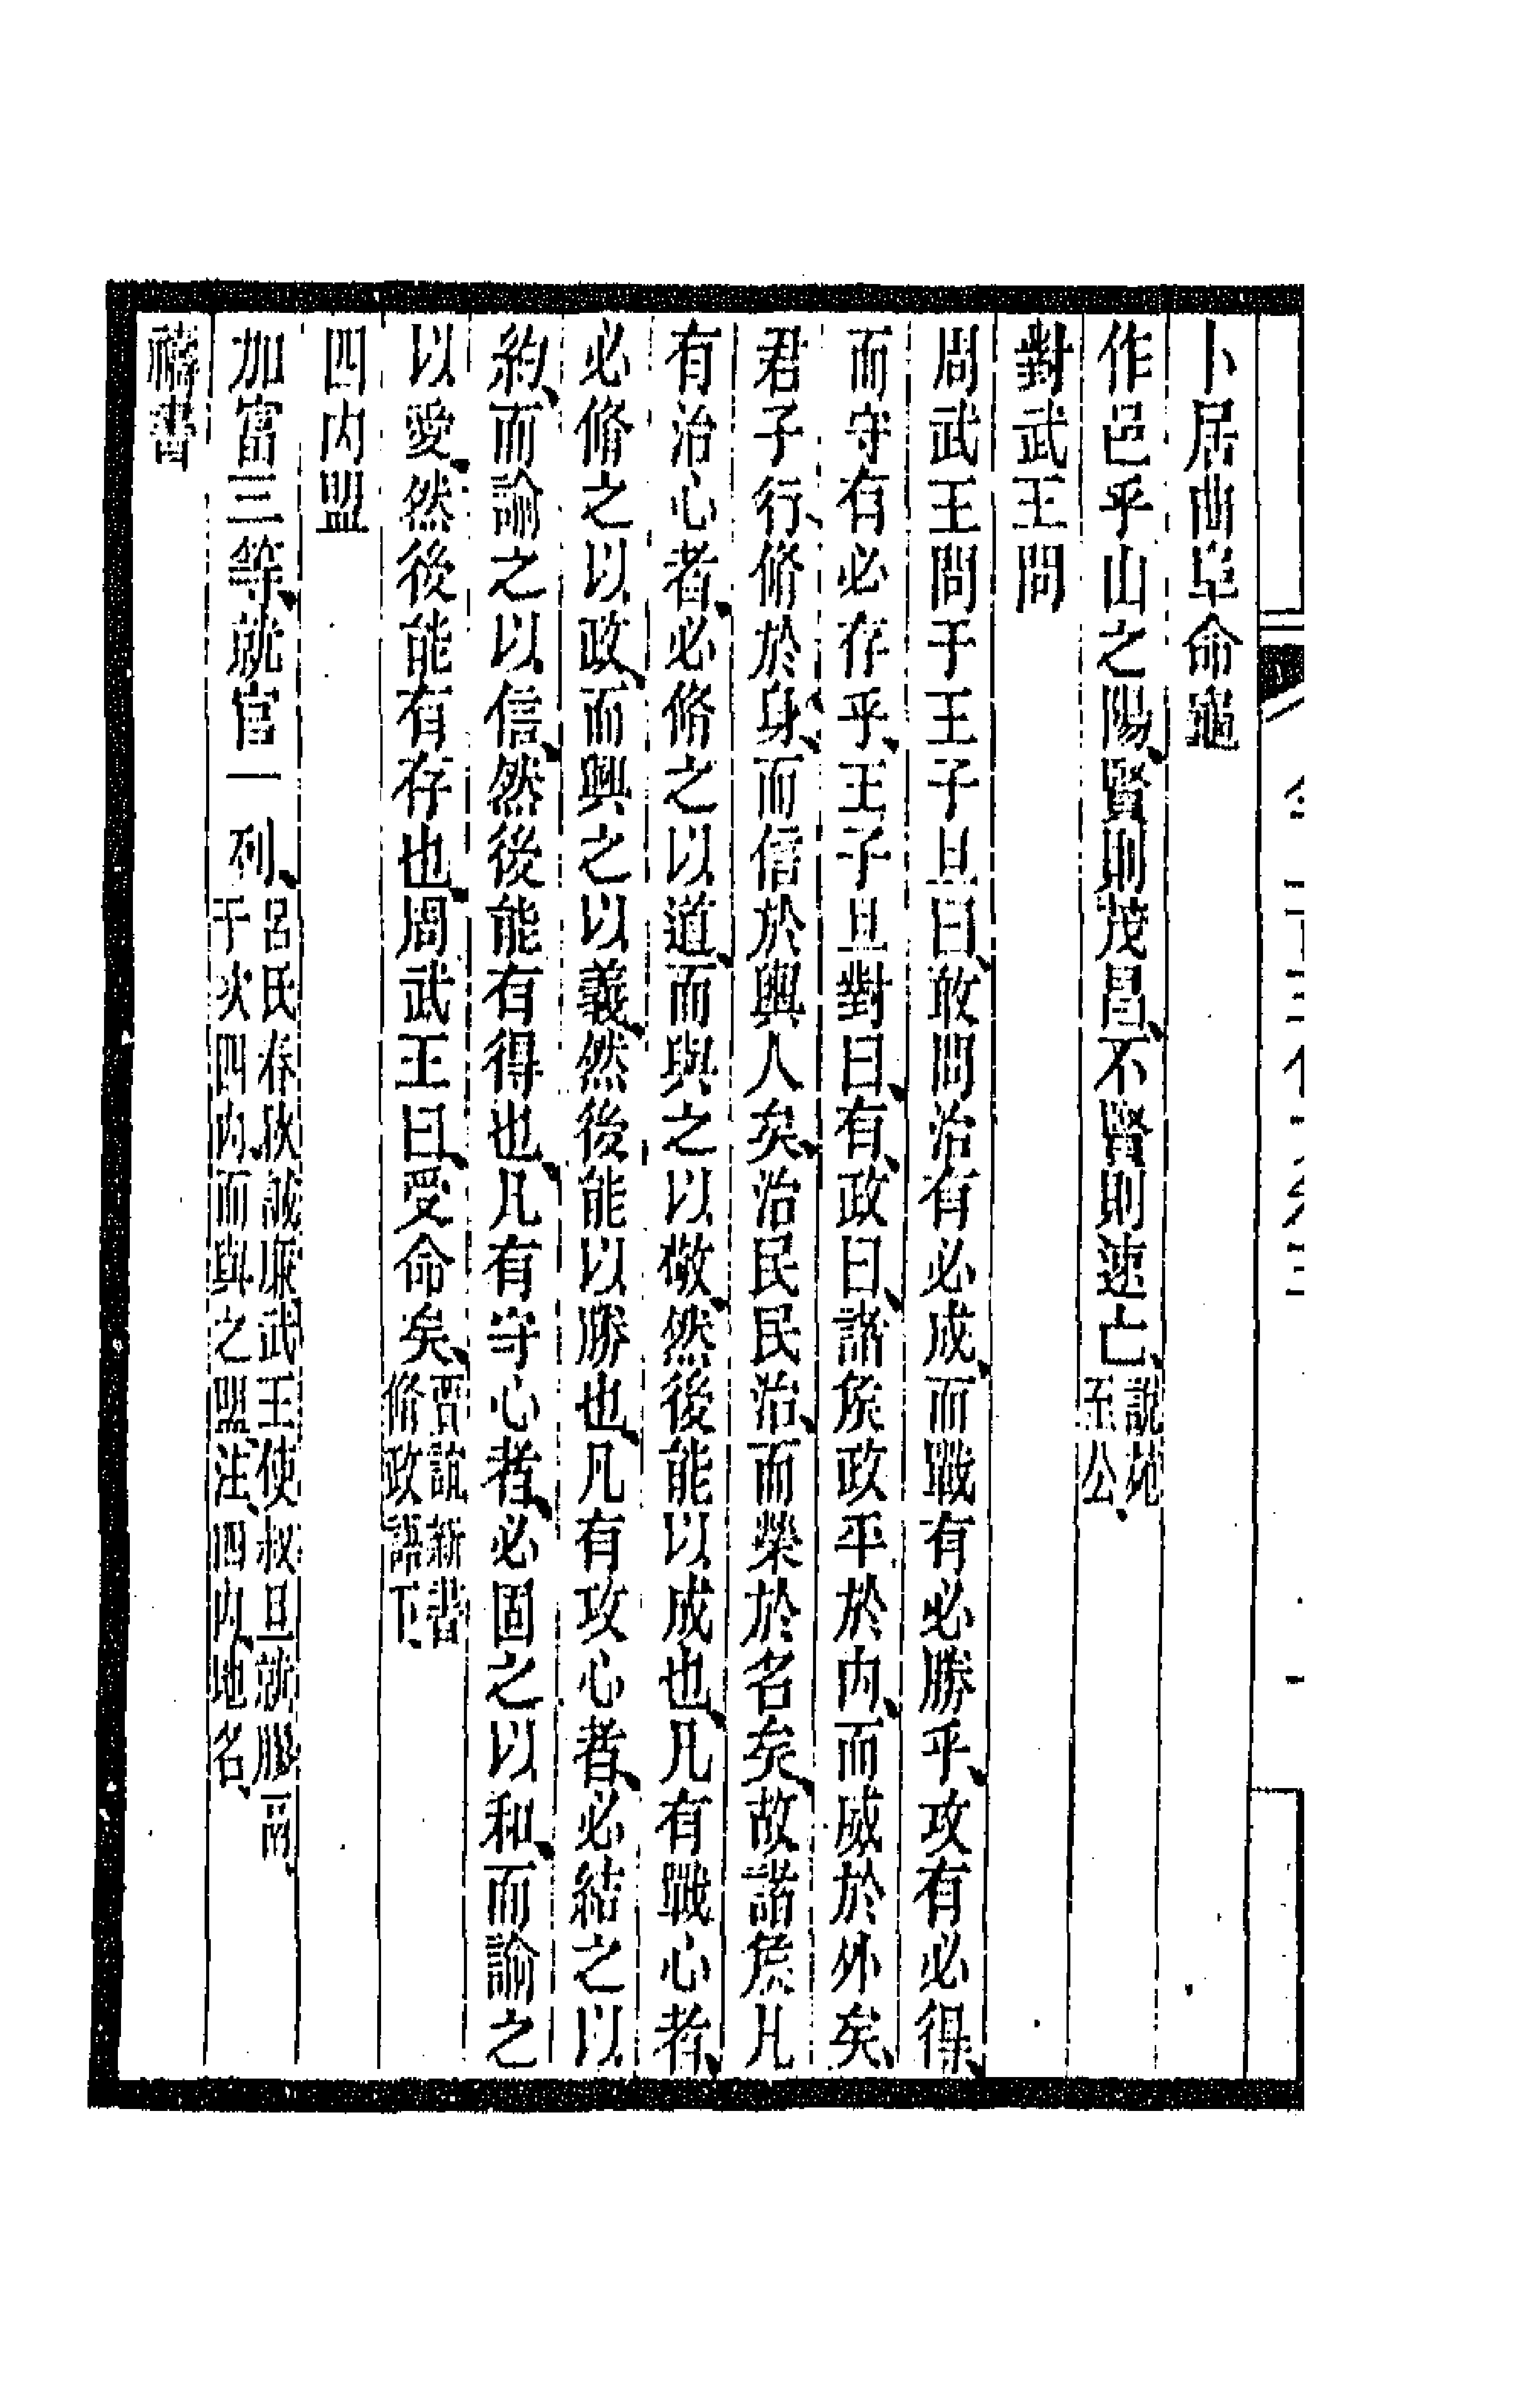 卜居曲阜命龜
作邑乎山之陽、賢則茂昌、不賢則速亡、說苑至公、
對武王問
周武王問于王子旦曰、敢問治有必成、而戰有必勝乎、攻有必得、
而守有必存乎、王子旦對曰、有、政曰、諸矦政平於內、而威於外矣、
君子行脩於身、而信於輿人矣、治民民治、而榮於名矣、故諸矦凡
有治心者、必脩之以道、而與之以敬、然後能以成也、凡有戰心者、
必脩之以政、而興之以義、然後能以勝也、凡有攻心者、必結之以
約、而諭之以信、然後能有得也、凡有守心者、必固之以和、而諭之
以愛、然後能有存也、周武王曰、受命矣、賈誼新書脩政語下、
四內盟
加富三等、就官一列、呂氏春秋誠廉武王使叔旦就膠鬲、于次四內、而與之盟注、四內、地名、
禱書